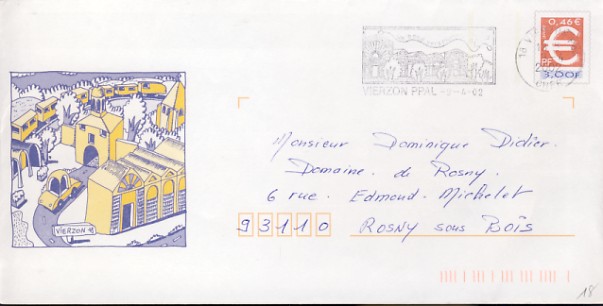 0,46 €
€
RF
3,00F
VIERZON PPAL -2-4-02
18 V
Monsieur Dominique Didier.
Domaine de Rosny.
6 rue. Edmond Michelet
93110 ROSNY sous BOIS
VIERZON
18